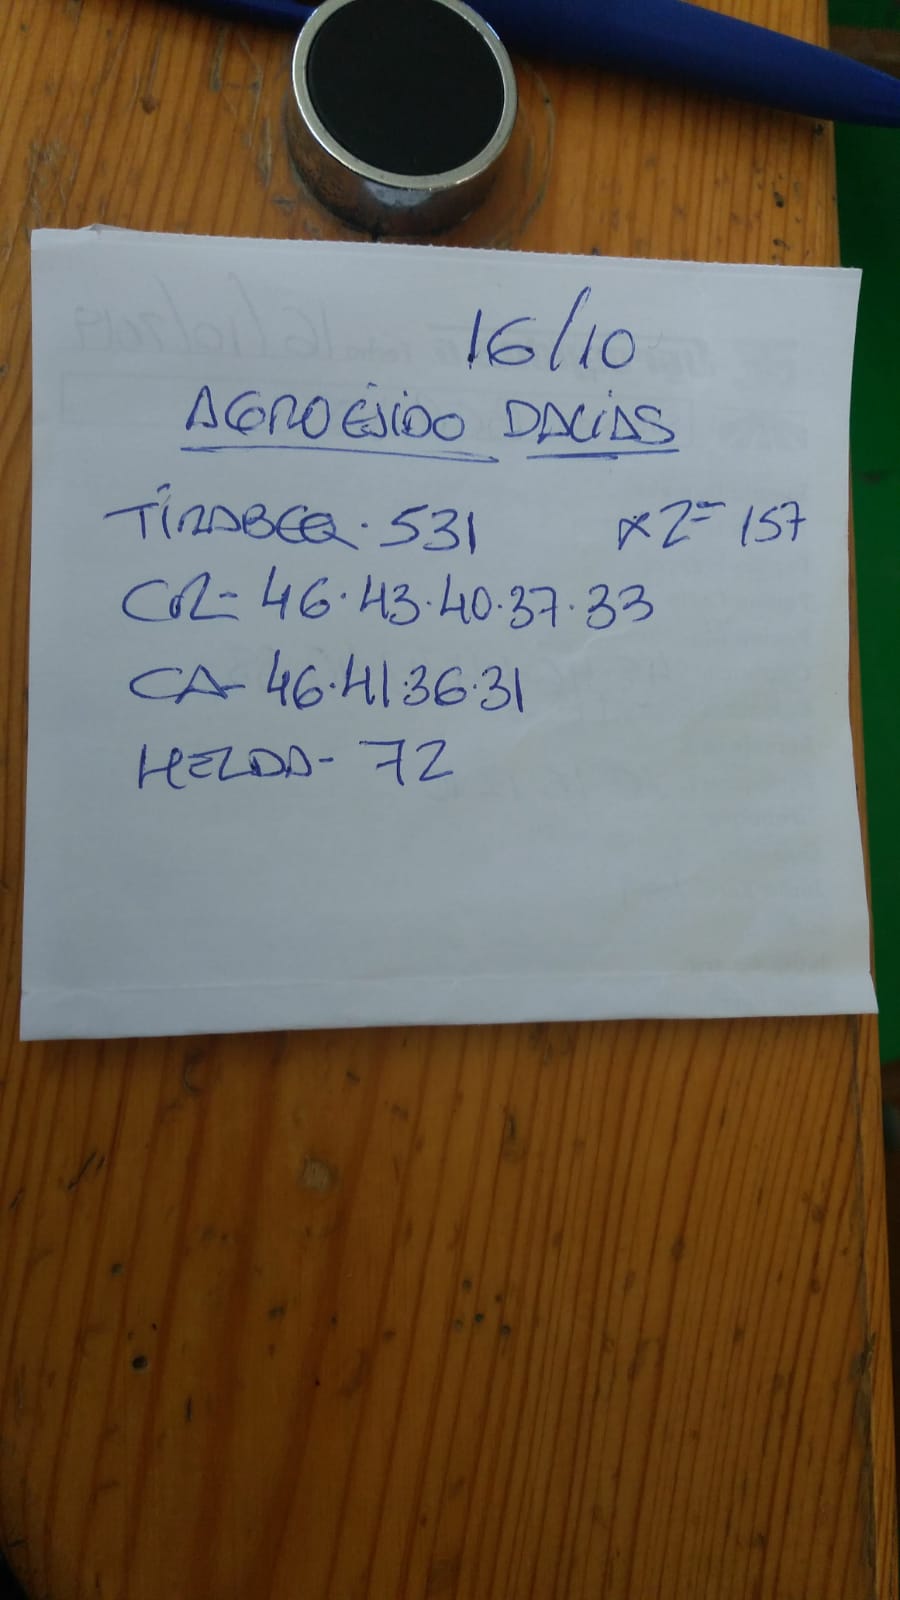 16/10
AGROEJIDO DALIAS
TIRABEQ. 531 x2= 157
COR- 46.43.40.37.33
CA- 46.41.36.31
HELDA- 72